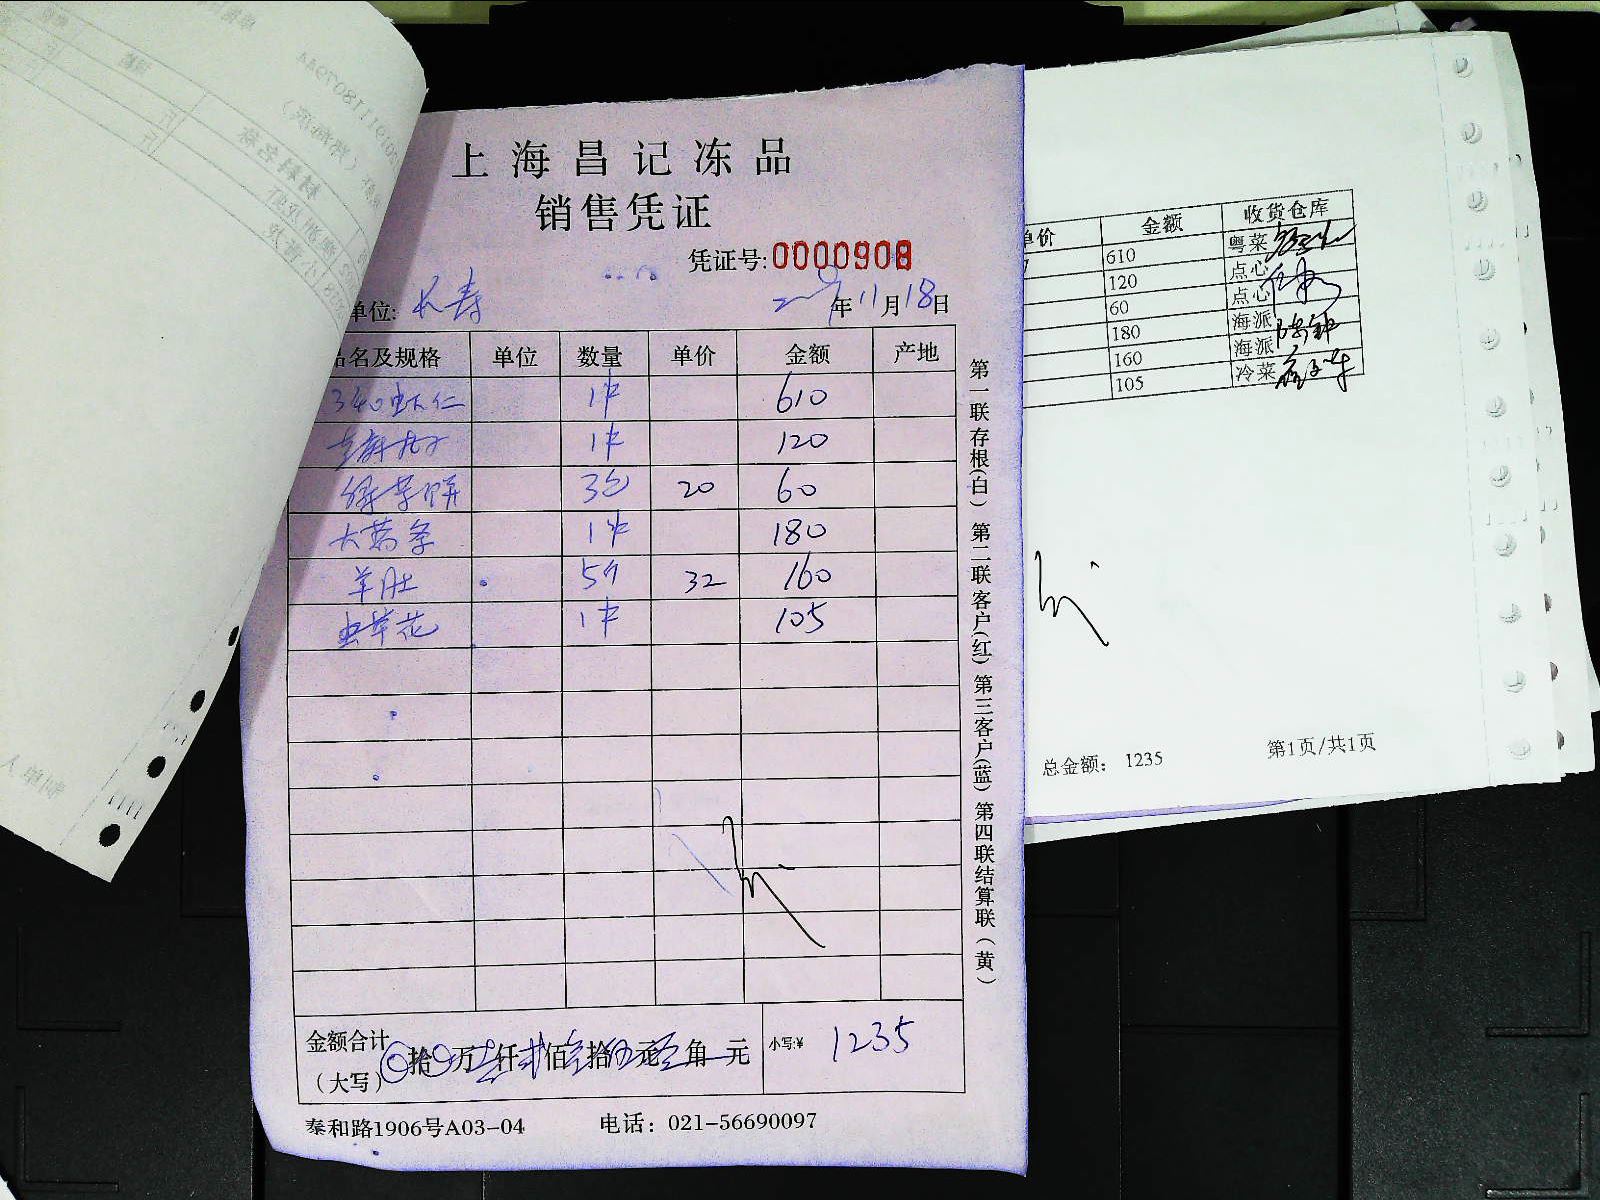 上海昌记冻品
销售凭证
凭证号:0000908
单位: 长寿 年11月18日
品名及规格 单位 数量 单价 金额 产地
340虾仁 1件 610
1件 120
绿茶饼 3包 20 60
大薯条 1件 180
羊肚 5个 32 160
虫草花 1件 105
金额合计
(大写) 拾 万 壹仟 贰佰 叁拾 伍元 角 元 小写:¥ 1235
泰和路1906号A03-04 电话：021-56690097
第一联存根(白) 第二联客户(红) 第三客户(蓝) 第四联结算联(黄)
单价 金额 收货仓库
610 粤菜
120 点心
60 点心
180 海派
160 海派
105 冷菜
总金额： 1235 第1页/共1页